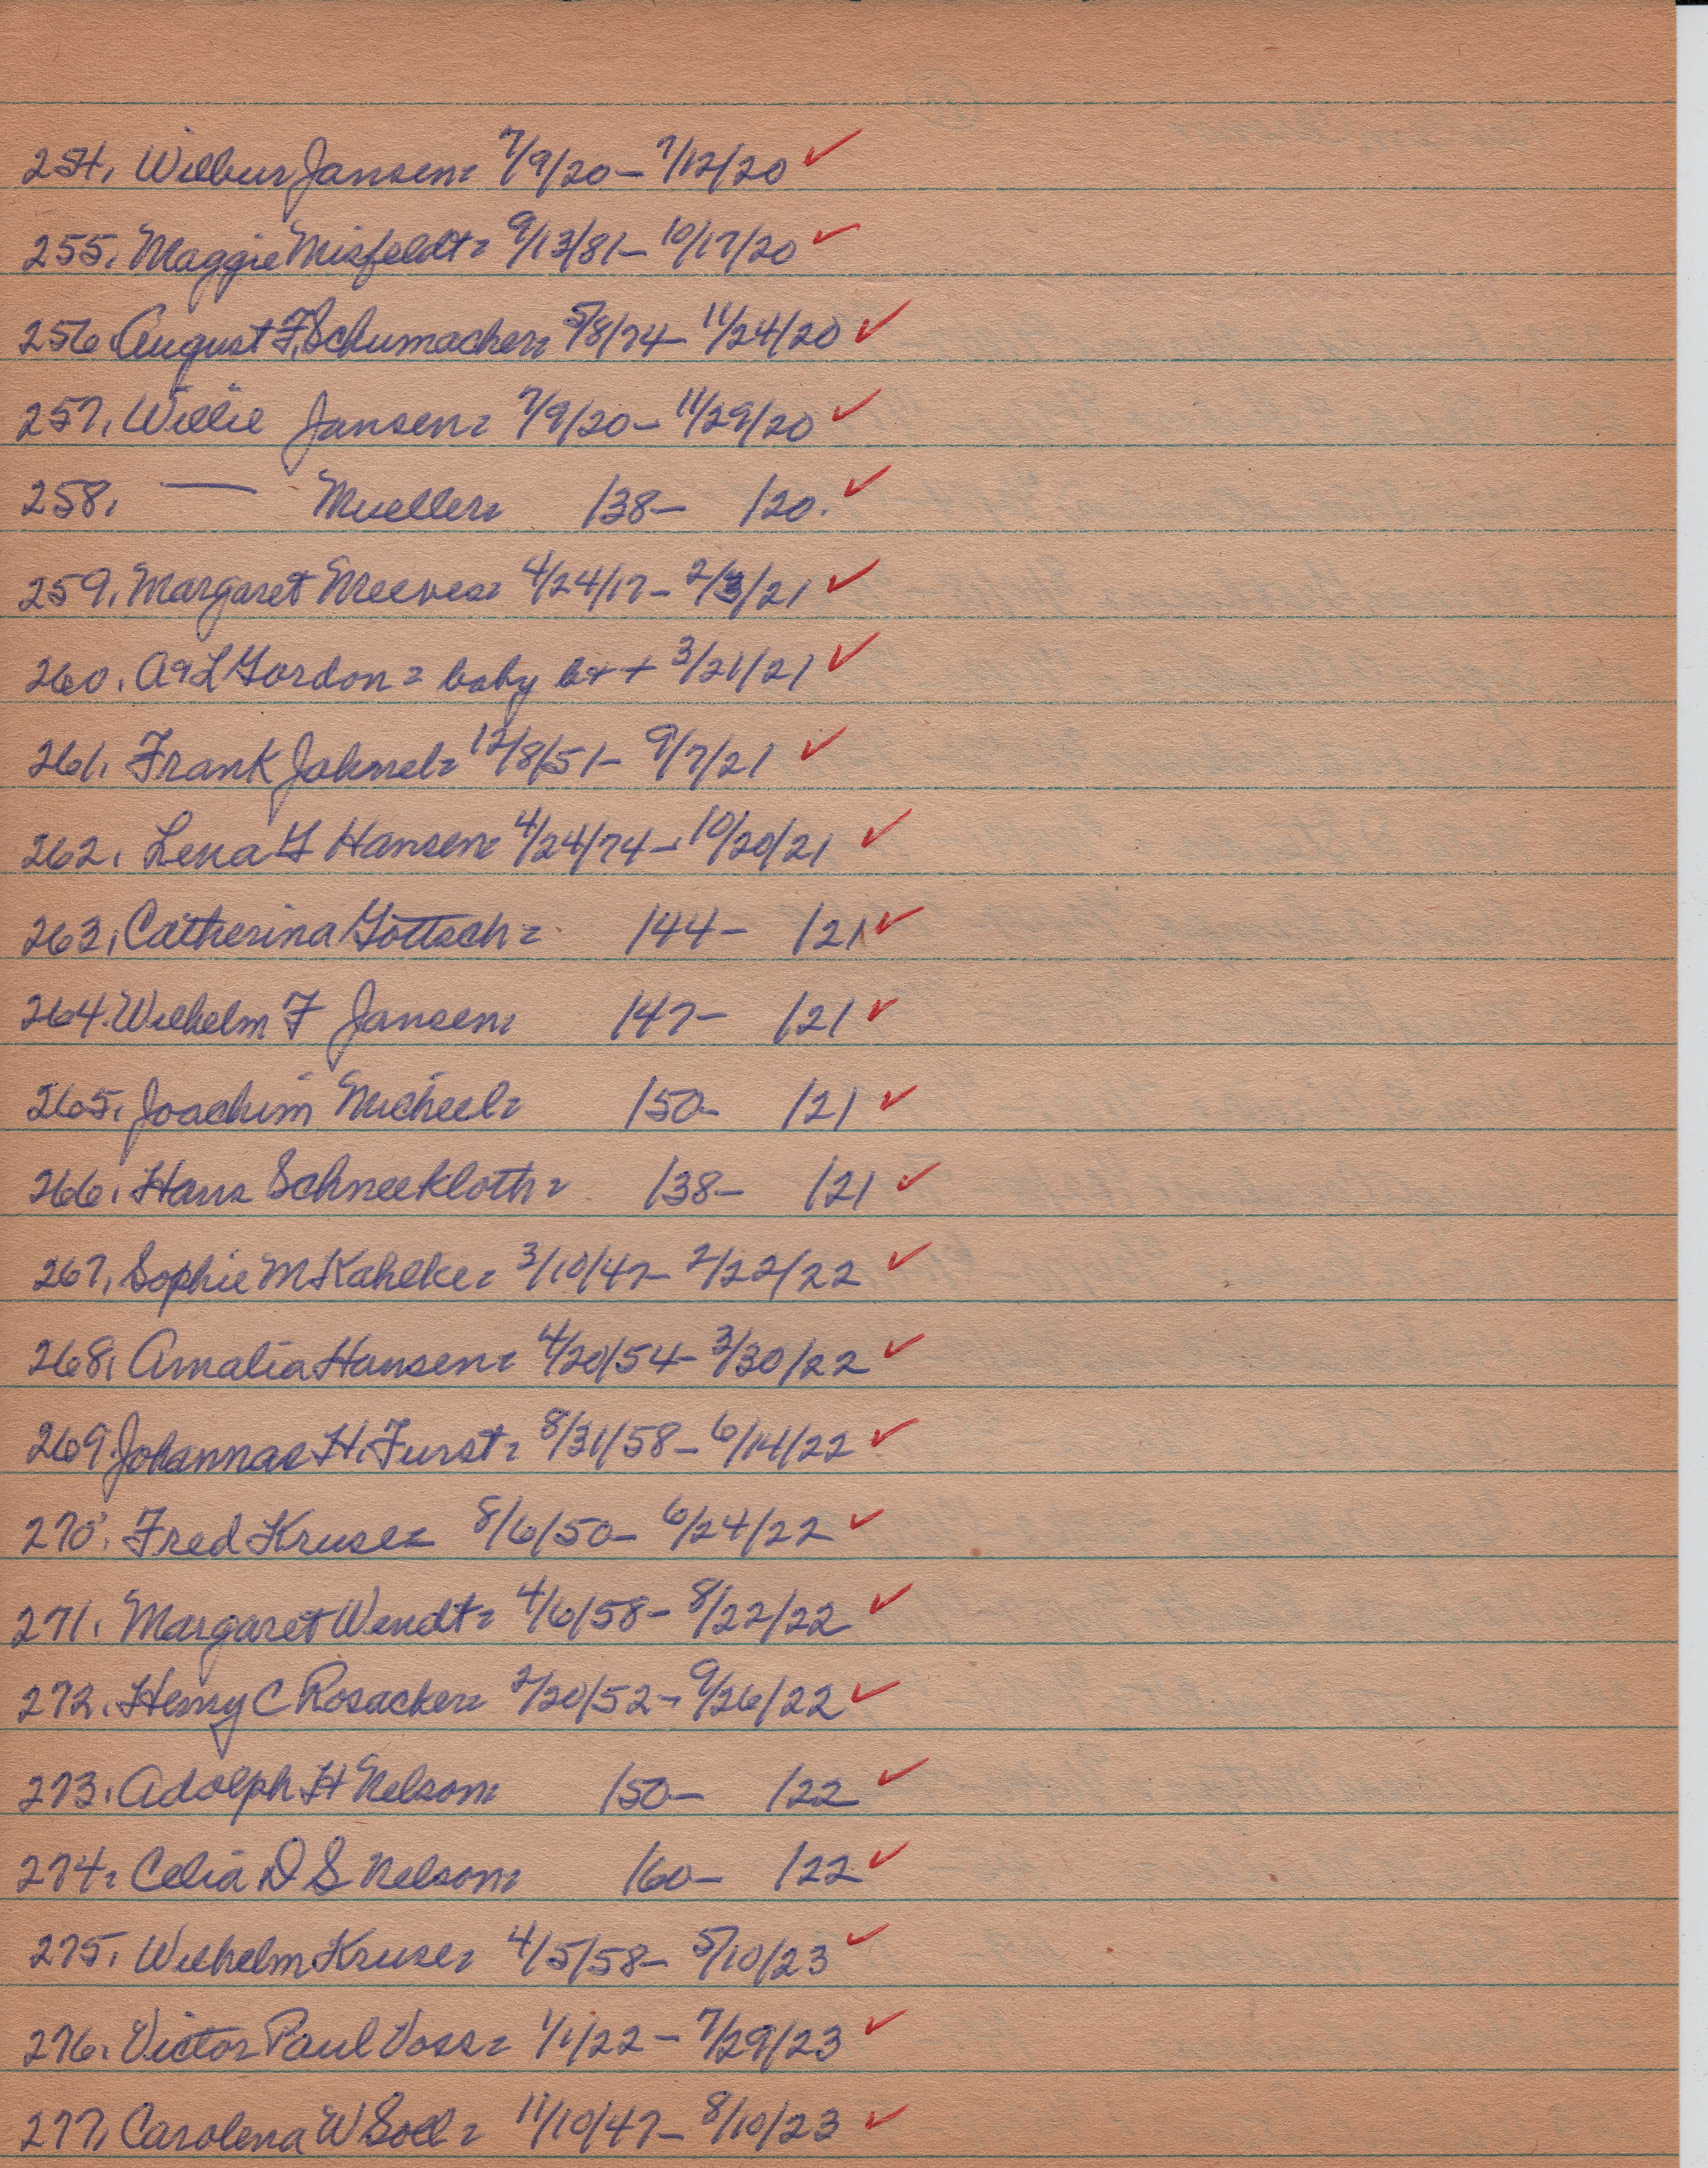 254. Wilbur Jansen= 7/9/20- 7/12/20 ✓
255. Maggie Misfeldt= 9/13/81- 10/17/20 ✓
256. August F. Schumacher= 5/8/74- 11/24/20 ✓
257. Willie Jansen= 7/9/20- 11/29/20 ✓
258. — Mueller= /38- /20. ✓
259. Margaret Meeves= 4/24/17- 2/3/21 ✓
260. A&L Gordon= baby b++ 3/21/21 ✓
261. Frank Jahnel= 12/8/51- 9/7/21 ✓
262. Lena G Hansen= 4/24/74- 10/20/21 ✓
263. Catherina Gottsch= /44- /21 ✓
264. Wilhelm F Jansen= /47- /21 ✓
265. Joachim Micheel= /50- /21 ✓
266. Hans Schneekloth= /38- /21 ✓
267. Sophie M Kahlke= 3/10/47- 2/22/22 ✓
268. Amalia Hansen= 4/20/54- 3/30/22 ✓
269. Johannas H. Furst= 8/31/58- 6/14/22 ✓
270. Fred Kruse= 8/6/50- 6/24/22 ✓
271. Margaret Wendt= 4/6/58- 8/22/22 ✓
272. Henry C Rosacker= 2/20/52- 9/26/22 ✓
273. Adolph H Nelson= /50- /22 ✓
274= Celia D S Nelson= /60- /22 ✓
275. Wilhelm Kruse= 4/5/58- 5/10/23 ✓
276. Victor Paul Voss= 1/1/22- 7/29/23 ✓
277. Carolena W Soll= 11/10/47- 8/10/23 ✓